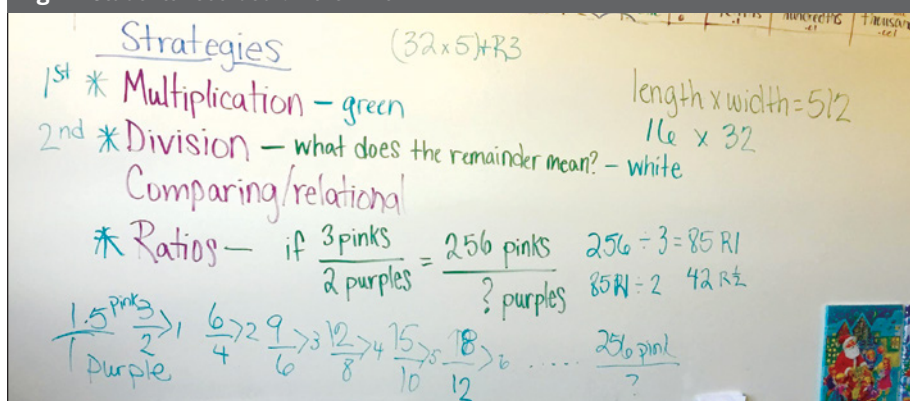 hundredths
Strategies
(32x5)+R3
1st * Multiplication - green
length x width = 512
16 x 32
2nd * Division - what does the remainder mean? - white
Comparing/relational
* Ratios - if 3 pinks / 2 purples = 256 pinks / ? purples
256 ÷ 3 = 85 R1
85 R1 ÷ 2 42 R½
1.5 pink / 1 purple 3/2 >1 6/4 >2 9/6 >3 12/8 >4 15/10 >5 18/12 >6 ..... 256 pink / ?